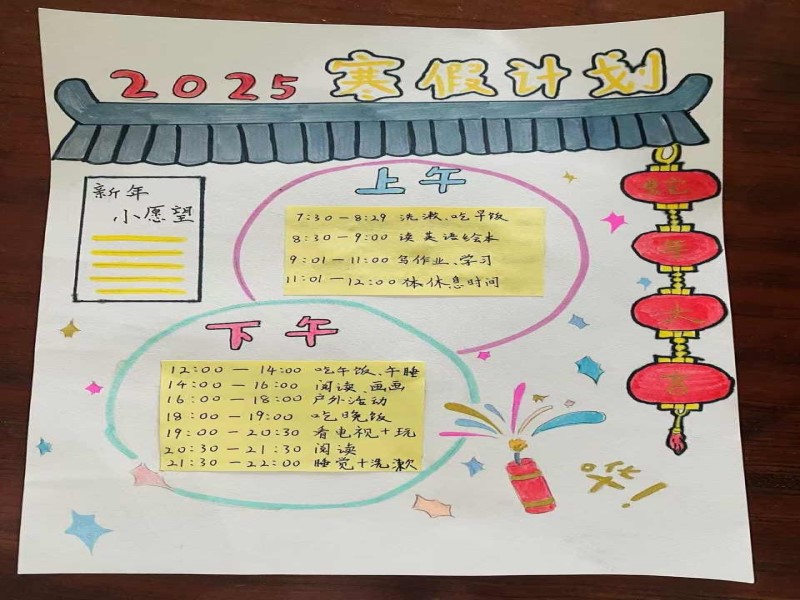 2025 寒假计划
新年
小愿望
上午
7:30 — 8:29 洗漱、吃早饭
8:30 — 9:00 读英语绘本
9:01 — 11:00 写作业、学习
11:01 — 12:00 休息时间
下午
12:00 — 14:00 吃午饭、午睡
14:00 — 16:00 阅读、画画
16:00 — 18:00 户外活动
18:00 — 19:00 吃晚饭
19:00 — 20:30 看电视+玩
20:30 — 21:30 阅读
21:30 — 22:00 睡觉+洗漱
年
大
吉